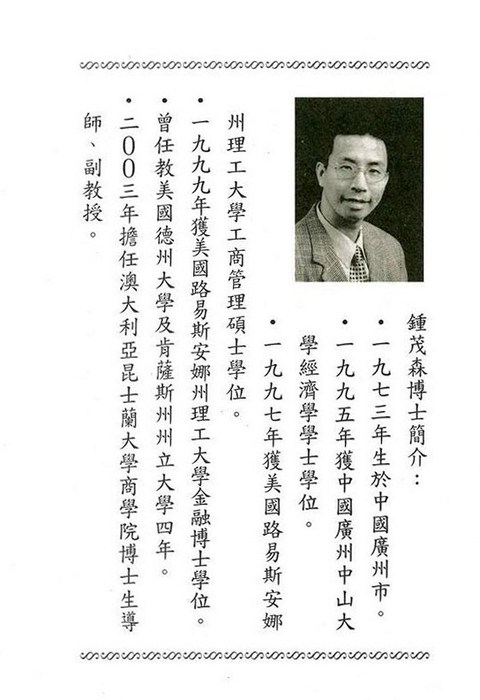 鍾茂森博士簡介：
•一九七三年生於中國廣州市。
•一九九五年獲中國廣州中山大
學經濟學學士學位。
•一九九七年獲美國路易斯安娜
州理工大學工商管理碩士學位。
•一九九九年獲美國路易斯安娜州理工大學金融博士學位。
•曾任教美國德州大學及肯薩斯州州立大學四年。
•二〇〇三年擔任澳大利亞昆士蘭大學商學院博士生導
師、副教授。